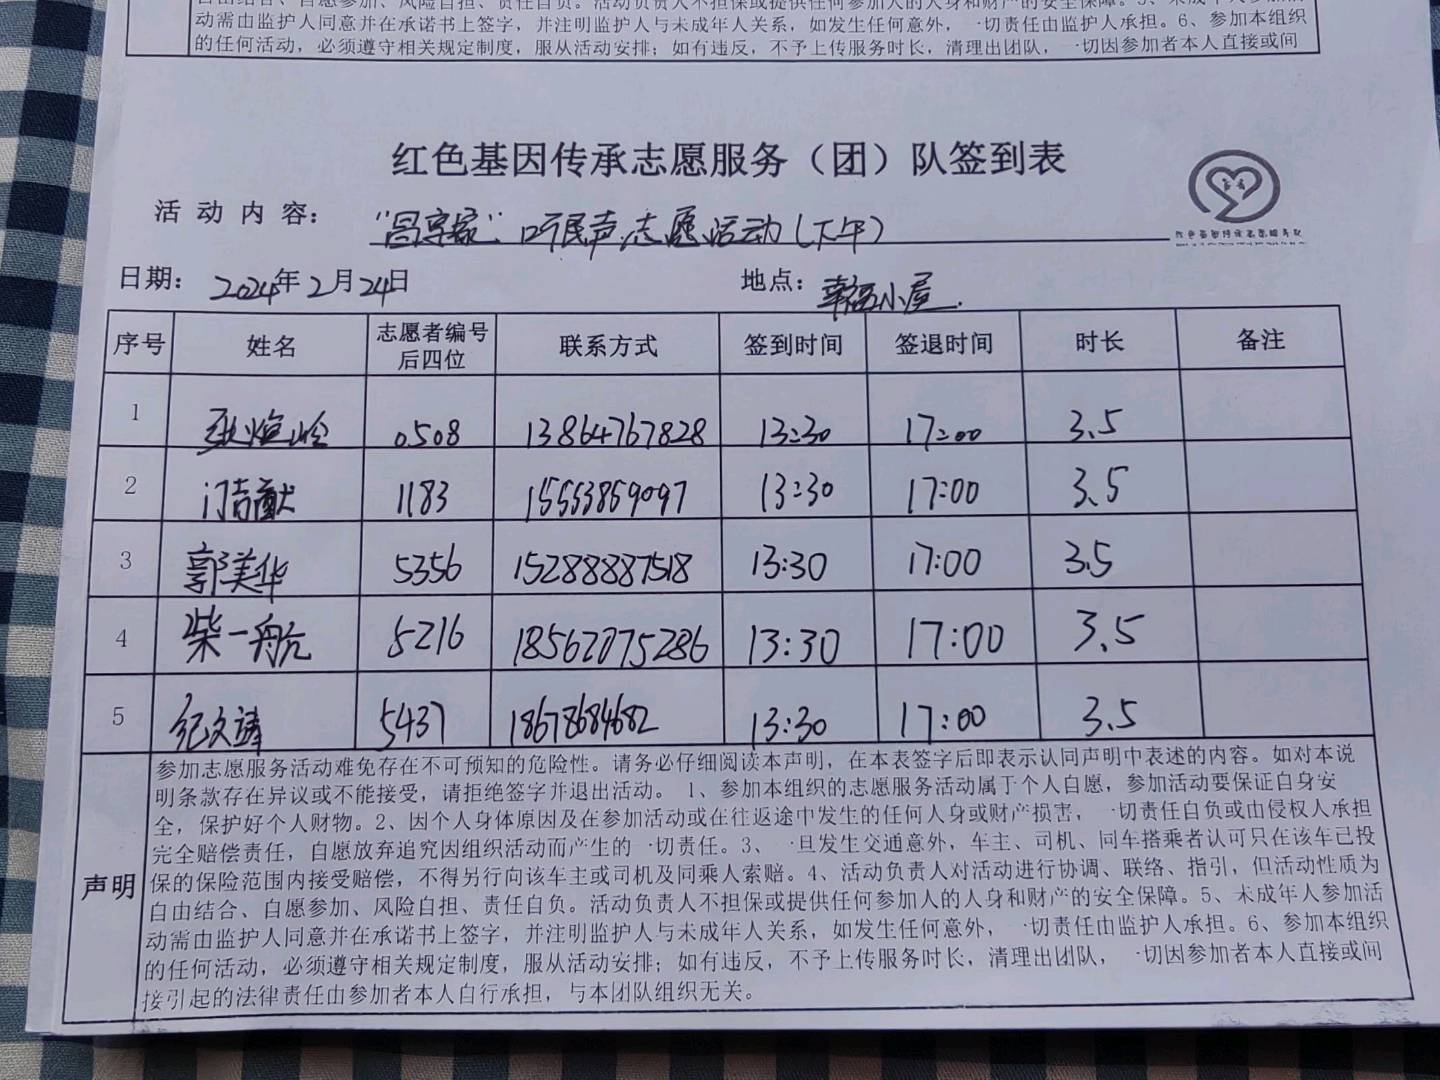 动需由监护人同意并在承诺书上签字，并注明监护人与未成年人关系，如发生任何意外，一切责任由监护人承担。6、参加本组织
的任何活动，必须遵守相关规定制度，服从活动安排；如有违反，不予上传服务时长，清理出团队，一切因参加者本人直接或间
红色基因传承志愿服务（团）队签到表
活动内容： 听民声志愿活动(下午)
日期： 2024年2月24日 地点： 幸福小屋.
序号 姓名 志愿者编号后四位 联系方式 签到时间 签退时间 时长 备注
1 0508 13864767828 13:30 17:00 3.5
2 1183 15553859097 13:30 17:00 3.5
3 郭美华 5356 15288887518 13:30 17:00 3.5
4 柴一航 5216 18562075286 13:30 17:00 3.5
5 纪文靖 5437 18678684682 13:30 17:00 3.5
声明
参加志愿服务活动难免存在不可预知的危险性。请务必仔细阅读本声明，在本表签字后即表示认同声明中表述的内容。如对本说
明条款存在异议或不能接受，请拒绝签字并退出活动。 1、参加本组织的志愿服务活动属于个人自愿，参加活动要保证自身安
全，保护好个人财物。2、因个人身体原因及在参加活动或在往返途中发生的任何人身或财产损害，一切责任自负或由侵权人承担
完全赔偿责任，自愿放弃追究因组织活动而产生的一切责任。3、一旦发生交通意外，车主、司机、同车搭乘者认可只在该车已投
保的保险范围内接受赔偿，不得另行向该车主或司机及同乘人索赔。4、活动负责人对活动进行协调、联络、指引，但活动性质为
自由结合、自愿参加、风险自担、责任自负。活动负责人不担保或提供任何参加人的人身和财产的安全保障。5、未成年人参加活
动需由监护人同意并在承诺书上签字，并注明监护人与未成年人关系，如发生任何意外，一切责任由监护人承担。6、参加本组织
的任何活动，必须遵守相关规定制度，服从活动安排；如有违反，不予上传服务时长，清理出团队，一切因参加者本人直接或间
接引起的法律责任由参加者本人自行承担，与本团队组织无关。